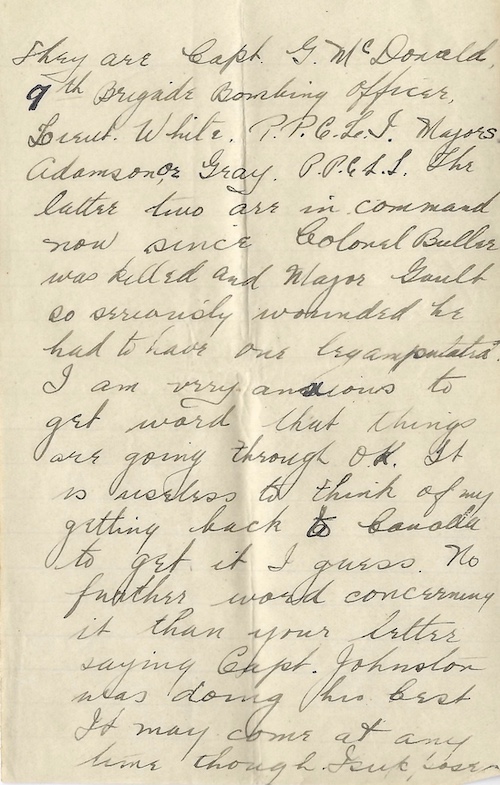 They are Capt. G. McDonald,
9th Brigade Bombing Officer,
Lieut. White. P.P.C.L.I. Majors
Adamson or Gray. P.P.C.L.I. The
latter two are in command
now since Colonel Buller
was killed and Major Gault
so seriously wounded he
had to have one leg amputated.
I am very anxious to
get word that things
are going through OK. It
is useless to think of my
getting back to Canada
to get it I guess. No
further word concerning
it than your letter
saying Capt. Johnston
was doing his best
It may come at any
time though I suppose